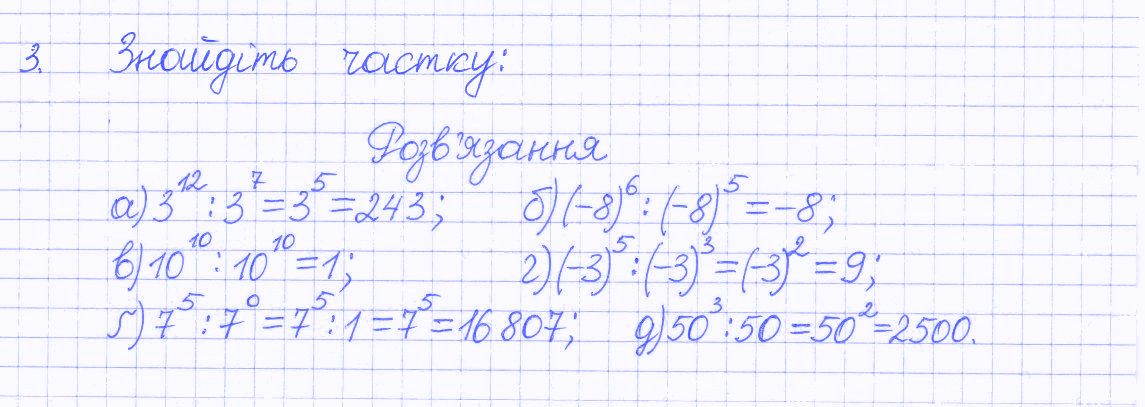 3. Знайдіть частку:
Розв'язання
а) 3¹² : 3⁷ = 3⁵ = 243; б) (-8)⁶ : (-8)⁵ = -8;
в) 10¹⁰ : 10¹⁰ = 1; г) (-3)⁵ : (-3)³ = (-3)² = 9;
ґ) 7⁵ : 7⁰ = 7⁵ : 1 = 7⁵ = 16 807; д) 50³ : 50 = 50² = 2500.